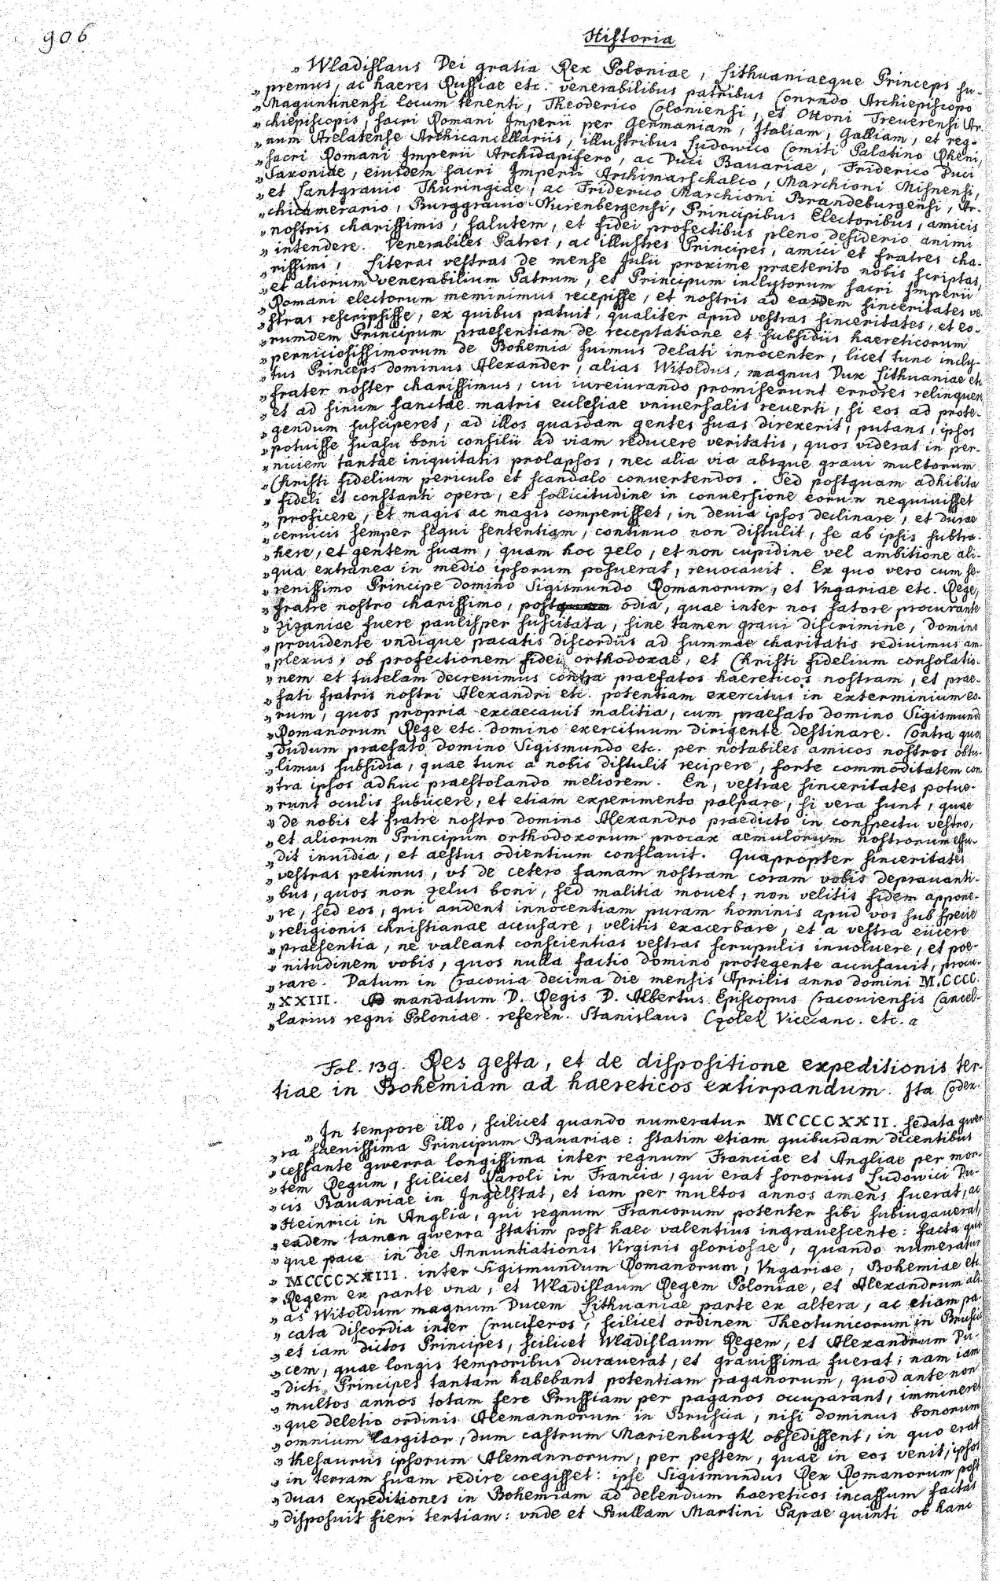 906
Historia
„ Wladislaus Dei gratia Rex Poloniae, Lithuaniaeque Princeps su-
„ premus, ac haeres Russiae etc. venerabilibus patribus Conrado Archiepiscopo
„ Maguntinensi locum tenenti, Theoderico Coloniensi, et Ottoni Treuerensi Ar-
„ chiepiscopis, sacri Romani Imperii per Germaniam, Italiam, Galliam, et reg-
„ num Arelatense Archicancellariis, illustribus Ludowico Comiti Palatino Rheni,
„ sacri Romani Imperii Archidapifero, ac Duci Bauariae, Friderico Duci
„ Saxoniae, eiusdem sacri Imperii Archimarschalco, Marchioni Misnensi,
„ et Lantgrauio Thuringiae, ac Friderico Marchioni Brandeburgensi, Ar-
„ chicamerario, Burggrauio Nurenbergensi, Principibus Electoribus, amicis
„ nostris charissimis, salutem, et fidei profectibus pleno desiderio animi
„ intendere. Venerabiles Patres, ac illustres Principes, amici et fratres cha-
„ rissimi, Literas vestras de mense Julii proxime praeterito nobis scriptas,
„ et aliorum venerabilium Patrum, et Principum inclytorum sacri Imperii
„ Romani electorum meminimus recepisse, et nostris ad easdem sinceritates ve-
„ stras rescripsisse, ex quibus patuit, qualiter apud vestras sinceritates, et eo-
„ rumdem Principum praesentiam de receptatione et subsidiis haereticorum
„ perniciosissimorum de Bohemia fuimus delati innocenter, licet tunc incly-
„ tus Princeps dominus Alexander, alias Witoldus, magnus Dux Lithuaniae etc.
„ frater noster charissimus, cui iureiurando promiserunt errores relinquere,
„ et ad sinum sanctae matris ecclesiae vniuersalis reuerti, si eos ad prote-
„ gendum susciperet, ad illos quasdam gentes suas direxerit, putans, ipsos
„ potuisse suasu boni consilii ad viam reducere veritatis, quos viderat in per-
„ niciem tantae iniquitatis prolapsos, nec alia via absque graui multorum
„ Christi fidelium periculo et scandalo conuertendos. Sed postquam adhibita
„ fideli et constanti opera, et sollicitudine in conuersione eorum nequiuisset
„ proficere, et magis ac magis comperisset, in deuia ipsos declinare, et durae
„ ceruicis semper sequi sententiam, continuo non distulit, se ab ipsis subtra-
„ here, et gentem suam, quam hoc zelo, et non cupidine vel ambitione ali-
„ qua extranea in medio ipsorum posuerat, reuocauit. Ex quo vero cum se-
„ renissimo Principe domino Sigismundo Romanorum, et Vngariae etc. Rege,
„ fratre nostro charissimo, post odia, quae inter nos satore procurante
„ zizaniae fuere paulisper suscitata, sine tamen graui discrimine, domino
„ prouidente vndique pacatis discordiis ad summae charitatis rediuimus am-
„ plexus, ob profectionem fidei orthodoxae, et Christi fidelium consolatio-
„ nem et tutelam decreuimus contra praefatos haereticos nostram, et prae-
„ fati fratris nostri Alexandri etc. potentiam exercitus in exterminium eo-
„ rum, quos propria excaecauit malitia, cum praefato domino Sigismundo
„ Romanorum Rege etc. domino exercituum dirigente destinare. Contra quos
„ dudum praefato domino Sigismundo etc. per notabiles amicos nostros obtu-
„ limus subsidia, quae tunc a nobis distulit recipere, forte commoditatem con-
„ tra ipsos adhuc praestolando meliorem. En, vestrae sinceritates potue-
„ runt oculis subiicere, et etiam experimento palpare, si vera sunt, quae
„ de nobis et fratre nostro domino Alexandro praedicto in conspectu vestro,
„ et aliorum Principum orthodoxorum procax aemulorum nostrorum effu-
„ dit inuidia, et aestus odientium conflauit. Quapropter sinceritates
„ vestras petimus, vt de cetero famam nostram coram vobis deprauanti-
„ bus, quos non zelus boni, sed malitia mouet, non velitis fidem appone-
„ re, sed eos, qui audent innocentiam puram hominis apud vos sub specie
„ religionis christianae accusare, velitis exacerbare, et a vestra eiicere
„ praesentia, ne valeant conscientias vestras scrupulis inuoluere, et poe-
„ nitudinem vobis, quos nulla factio domino protegente accusauit, procu-
„ rare. Datum in Craconia decima die mensis Aprilis anno domini M.CCCC.
„ XXIII. Ad mandatum D. Regis D. Albertus Episcopus Cracouiensis Cancel-
„ larius regni Poloniae. referen. Stanislaus Czolek Vicecanc. etc. a
Fol. 139. Res gesta, et de dispositione expeditionis ter-
tiae in Bohemiam ad haereticos extirpandum. Ita Codex.
„ In tempore illo, scilicet quando numeratur MCCCCXXII. sedata gwer-
„ ra saeuissima Principum Bauariae: statim etiam quibusdam dicentibus
„ cessante gwerra longissima inter regnum Franciae et Angliae per mor-
„ tem Regum, scilicet Karoli in Francia, qui erat sororius Ludowici Du-
„ cis Bauariae in Ingelstat, et iam per multos annos amens fuerat, ac
„ Heinrici in Anglia, qui regnum Francorum potenter sibi subiugauerat,
„ eadem tamen gwerra statim post haec valentius ingrauescente: facta quo-
„ que pace in die Annuntiationis Virginis gloriosae, quando numeratur
„ MCCCCXXIII. inter Sigismundum Romanorum, Vngariae, Bohemiae etc.
„ Regem ex parte vna, et Wladislaum Regem Poloniae, et Alexandrum ali-
„ as Witoldum magnum Ducem Lithuaniae parte ex altera, ac etiam pa-
„ cata discordia inter Cruciferos, scilicet ordinem Theotunicorum in Bruscia
„ et iam dictos Principes, scilicet Wladislaum Regem, et Alexandrum Du-
„ cem, quae longis temporibus durauerat, et grauissima fuerat; nam iam
„ dicti Principes tantam habebant potentiam paganorum, quod ante non
„ multos annos totam fere Prussiam per paganos occuparant, immineret-
„ que deletio ordinis Alemannorum in Bruscia, nisi dominus bonorum
„ omnium largitor, dum castrum Marienburgk obsedissent, in quo erat
„ thesaurus ipsorum Alemannorum, per pestem, quae in eos venit, ipsos
„ in terram suam redire coegisset: ipse Sigismundus Rex Romanorum post
„ duas expeditiones in Bohemiam ad delendum haereticos incassum factas
„ disposuit fieri tertiam: vnde et Bullam Martini Papae quinti ob hanc